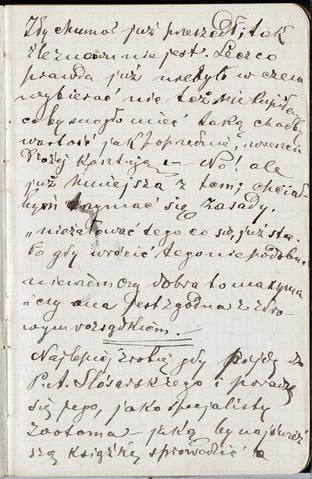 Zły humor już przeszedł, tak
źle znowu nie jest. Lecz co
prawda już nie było w czem
wybierać nie też nie kupiłem
coby mogło mieć taką choćby
wartość jak poprzednie,
drożej kosztuje — No! ale
już mniejsza z tem; chciał-
bym trzymać się zasady,
"nieżałować tego co się już sta-
ło gdy wrócić tego niepodobna"
niewiem czy dobra to maxyma
i czy ona jest zgodna z zdro-
wym rozsądkiem. —
Najlepiej zrobię gdy pójdę do
P. A. Slósarskiego i poradzę
się jego, jako specjalisty
zootoma — jaką by najśwież-
szą książkę sprowadzić a